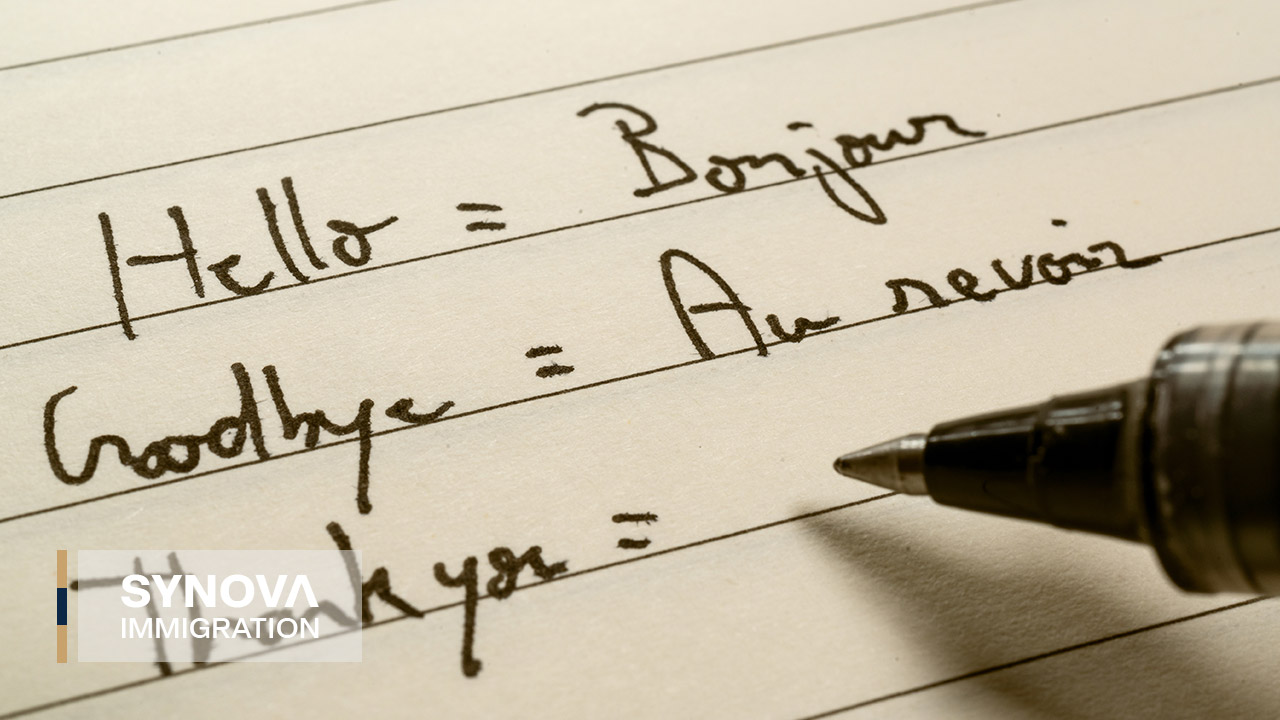 Hello = Bonjour
Goodbye = Au revoir
Thank you =
SYNOVA
IMMIGRATION